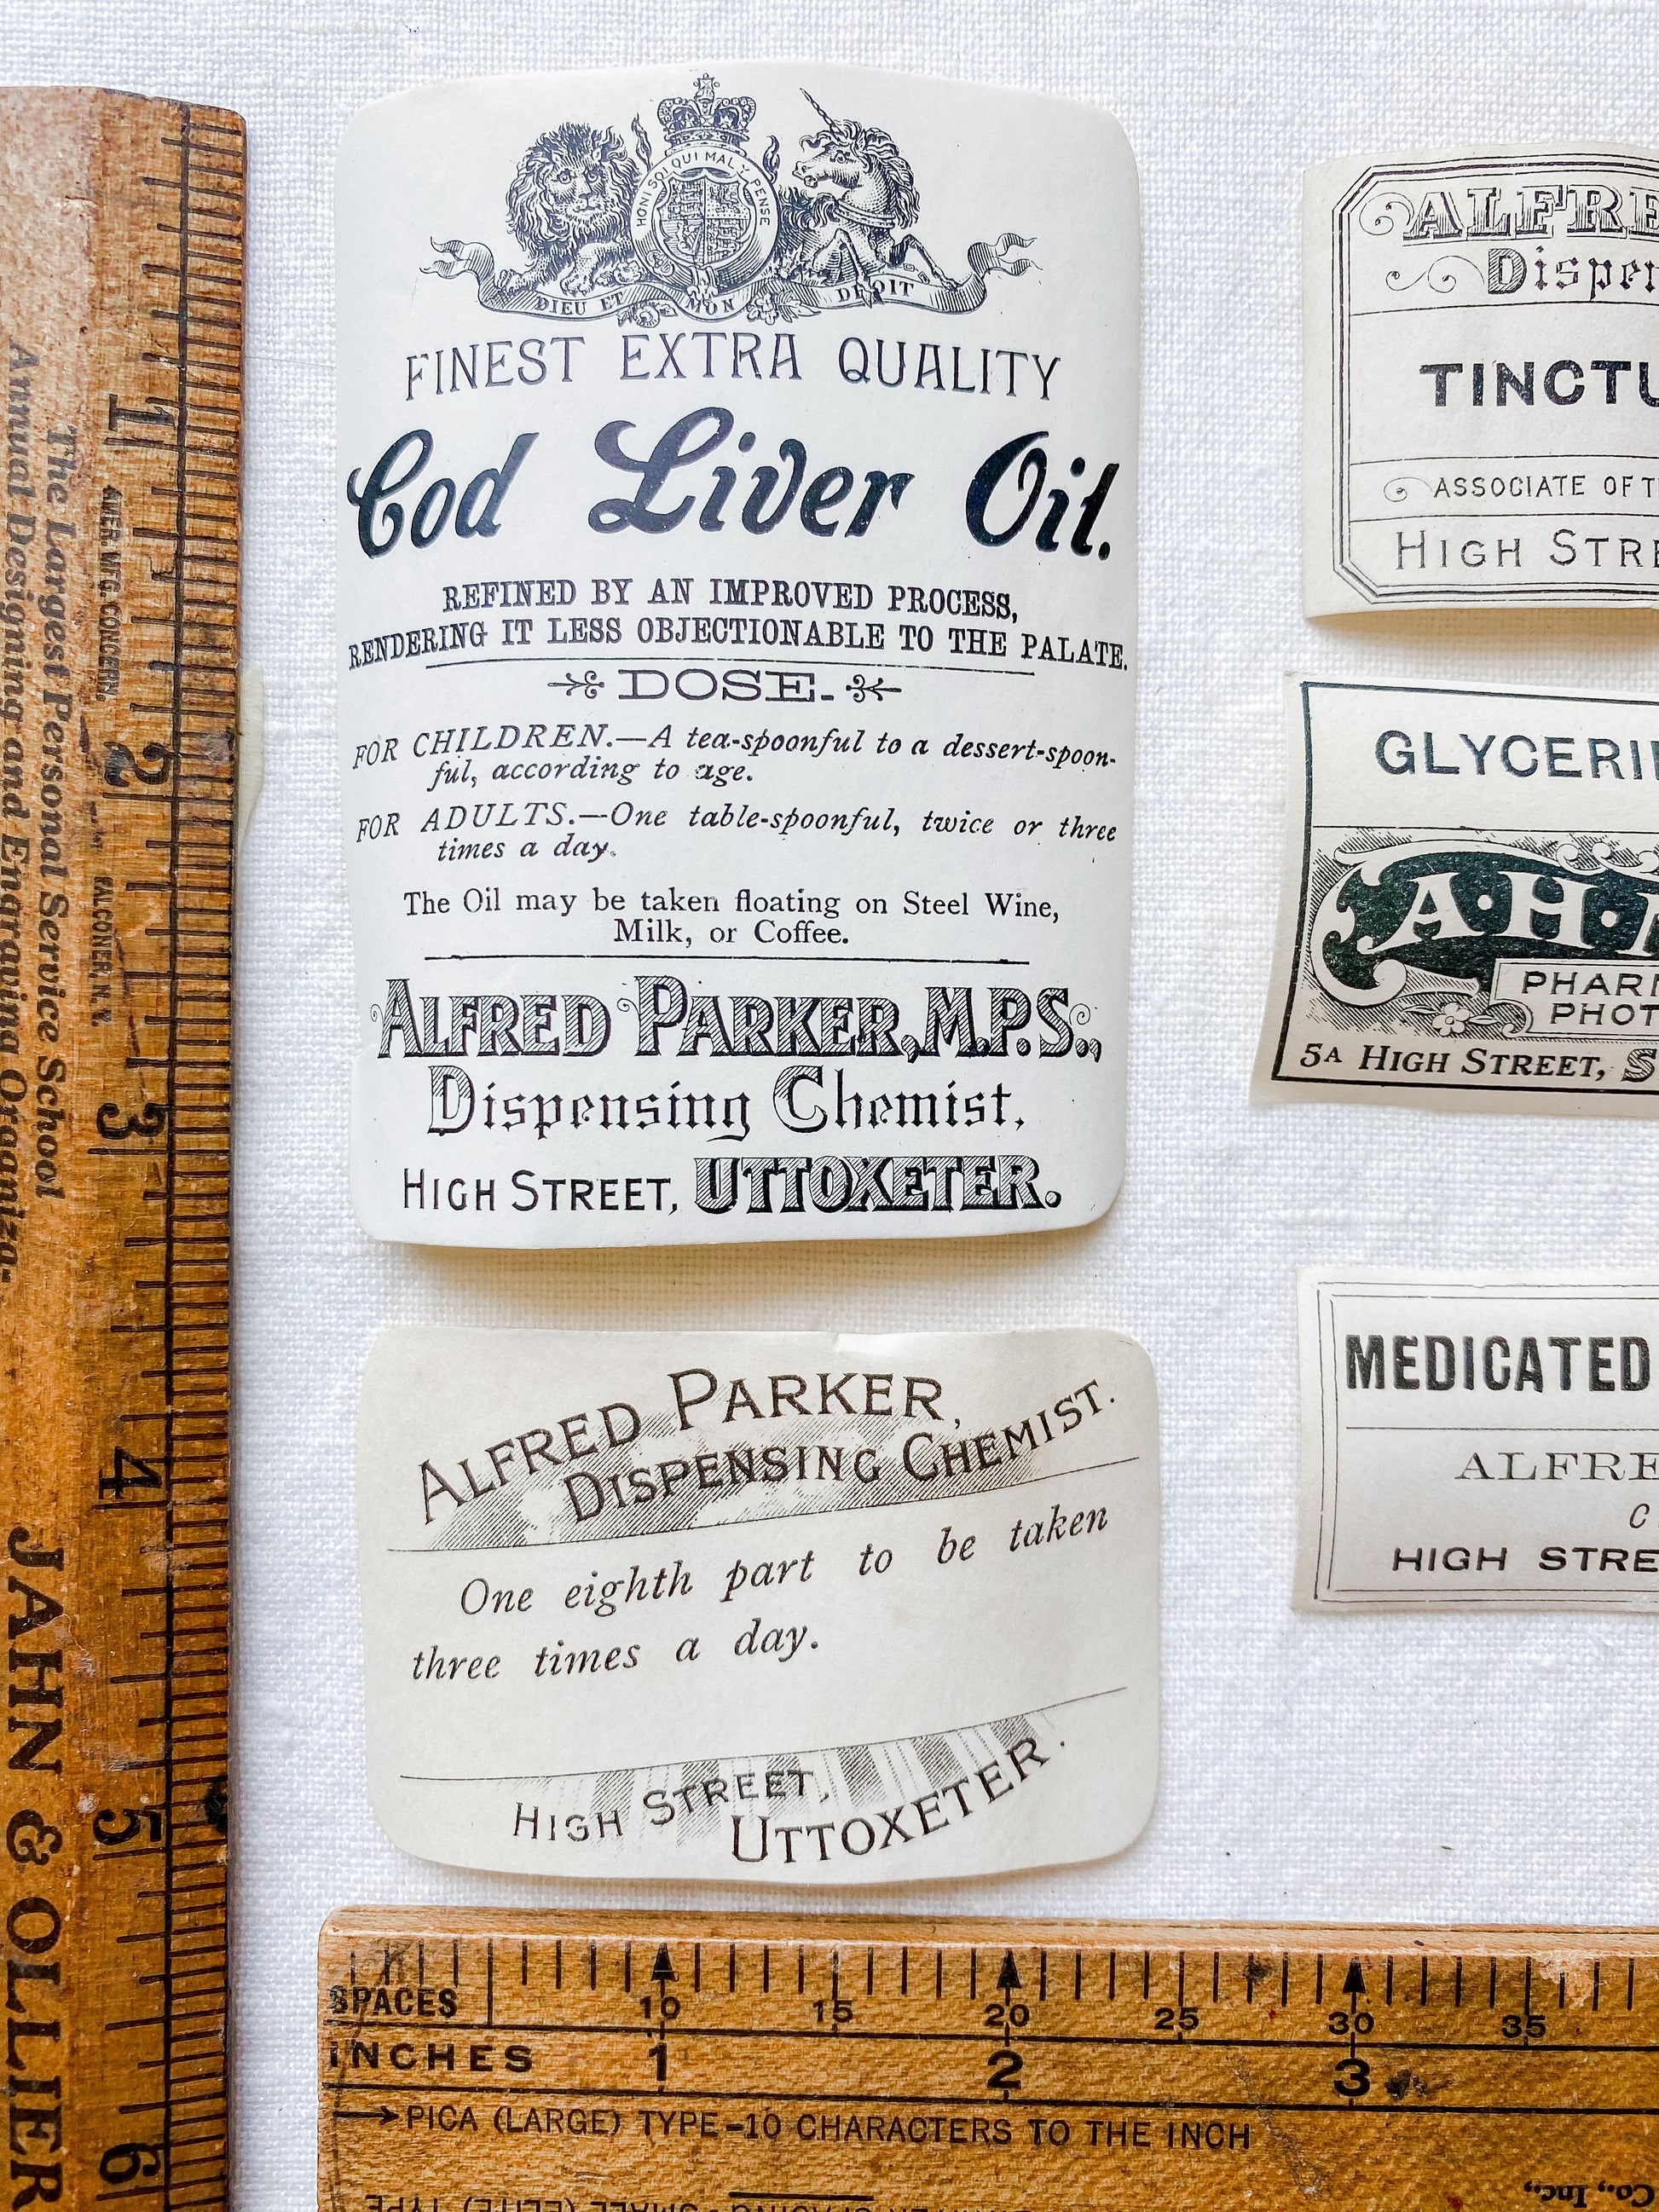 HONI SOI QUI MAL Y PENSE
DIEU ET MON DROIT
FINEST EXTRA QUALITY
Cod Liver Oil.
REFINED BY AN IMPROVED PROCESS,
RENDERING IT LESS OBJECTIONABLE TO THE PALATE.
DOSE.
FOR CHILDREN.—A tea-spoonful to a dessert-spoon-
ful, according to age.
FOR ADULTS.—One table-spoonful, twice or three
times a day.
The Oil may be taken floating on Steel Wine,
Milk, or Coffee.
ALFRED PARKER, M.P.S.,
Dispensing Chemist,
HIGH STREET, UTTOXETER.
ALFRED PARKER,
DISPENSING CHEMIST.
One eighth part to be taken
three times a day.
HIGH STREET,
UTTOXETER.
ALFRE
Dispen
TINCTU
ASSOCIATE OF T
HIGH STRE
GLYCERI
A.H.
PHAR
PHOT
5A HIGH STREET, S
MEDICATED
ALFRE
C
HIGH STRE
1 2 3 4 5 6
AMER. MFG. CONCERN, FALCONER, N.Y.
The Largest Personal Service School
Annual Designing and Engraving Organiza-
JAHN & OLLIER
SPACES 10 15 20 25 30 35
INCHES 1 2 3
PICA (LARGE) TYPE-10 CHARACTERS TO THE INCH
Co., Inc.,